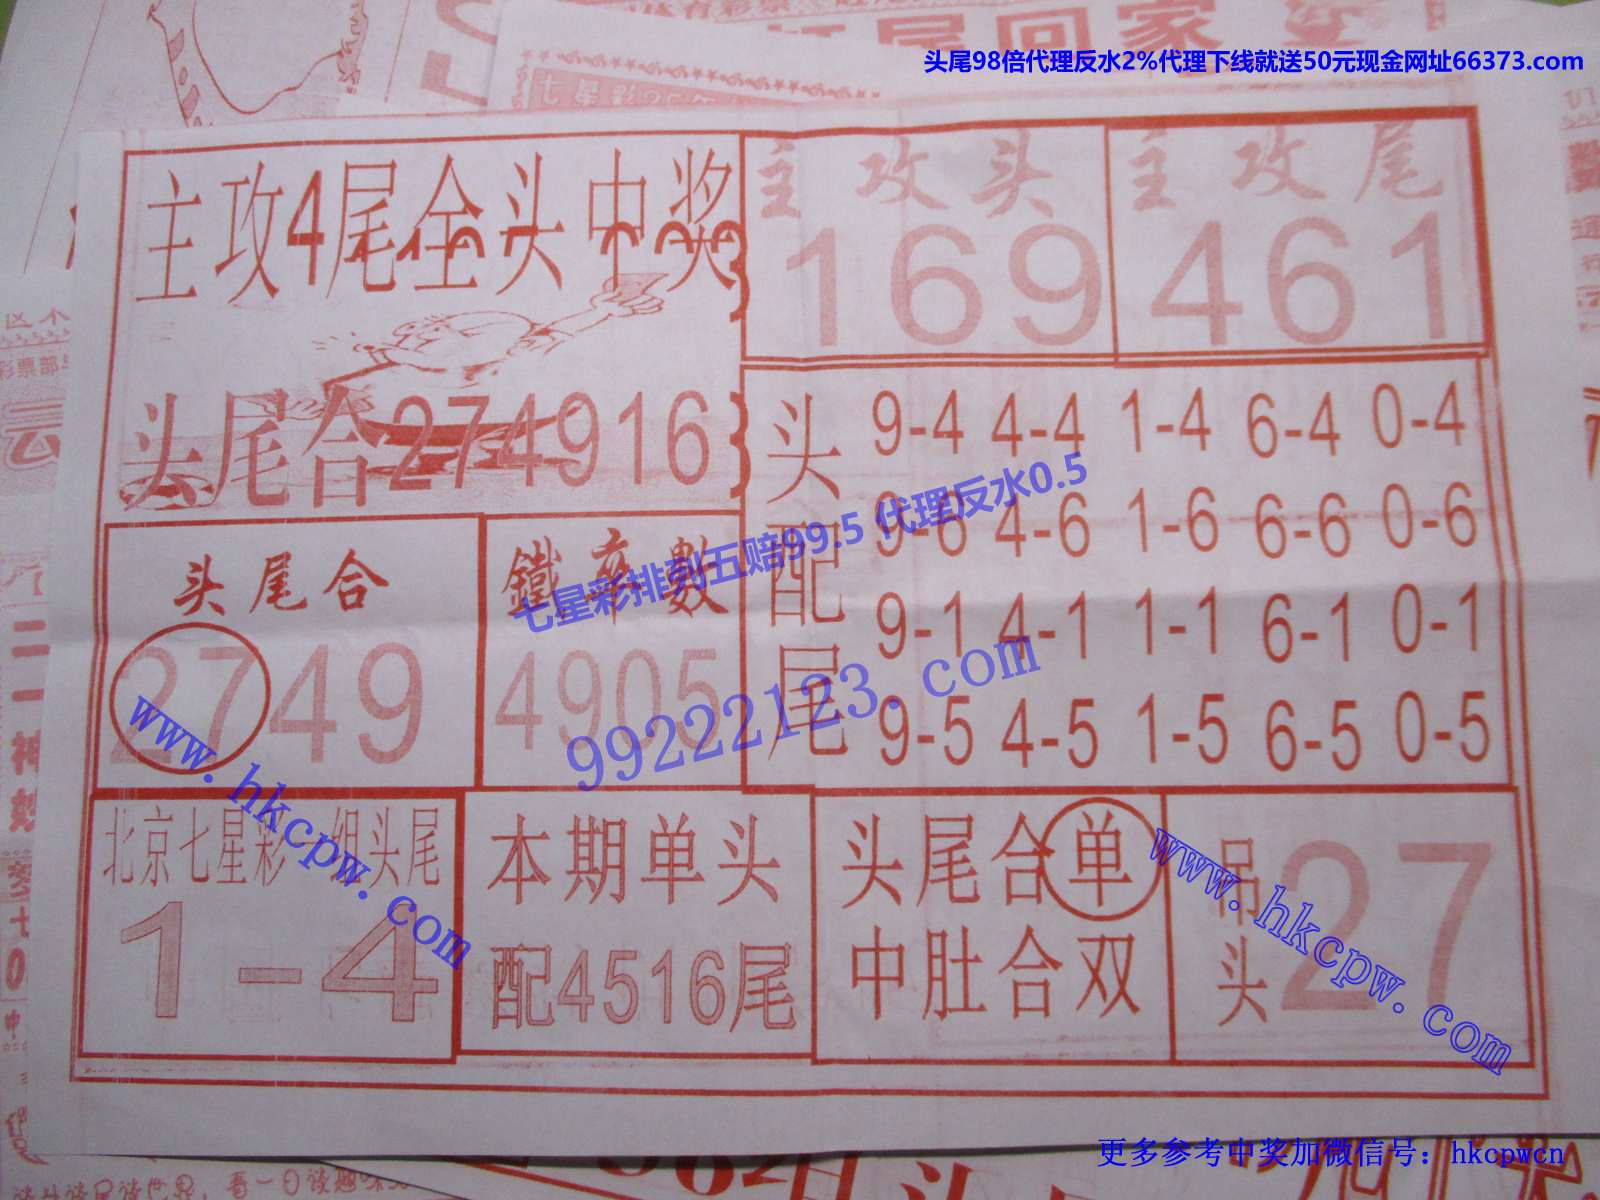 头尾98倍代理反水2%代理下线就送50元现金网址66373.com
尾回家
七星彩25
主攻4尾全头中奖
头尾合274916
主攻头
169
主攻尾
461
头配尾
9-4 4-4 1-4 6-4 0-4
9-6 4-6 1-6 6-6 0-6
9-1 4-1 1-1 6-1 0-1
9-5 4-5 1-5 6-5 0-5
头尾合
2749
鐵卒數
4905
七星彩排列五赔99.5 代理反水0.5
99222123.com
www.hkcpw.com
北京七星彩一组头尾
1-4
本期单头
配4516尾
头尾合单
中肚合双
吊头
27
www.hkcpw.com
彩票部
云
二一神妙
更多参考中奖加微信号：hkcpwcn
看一日读趣